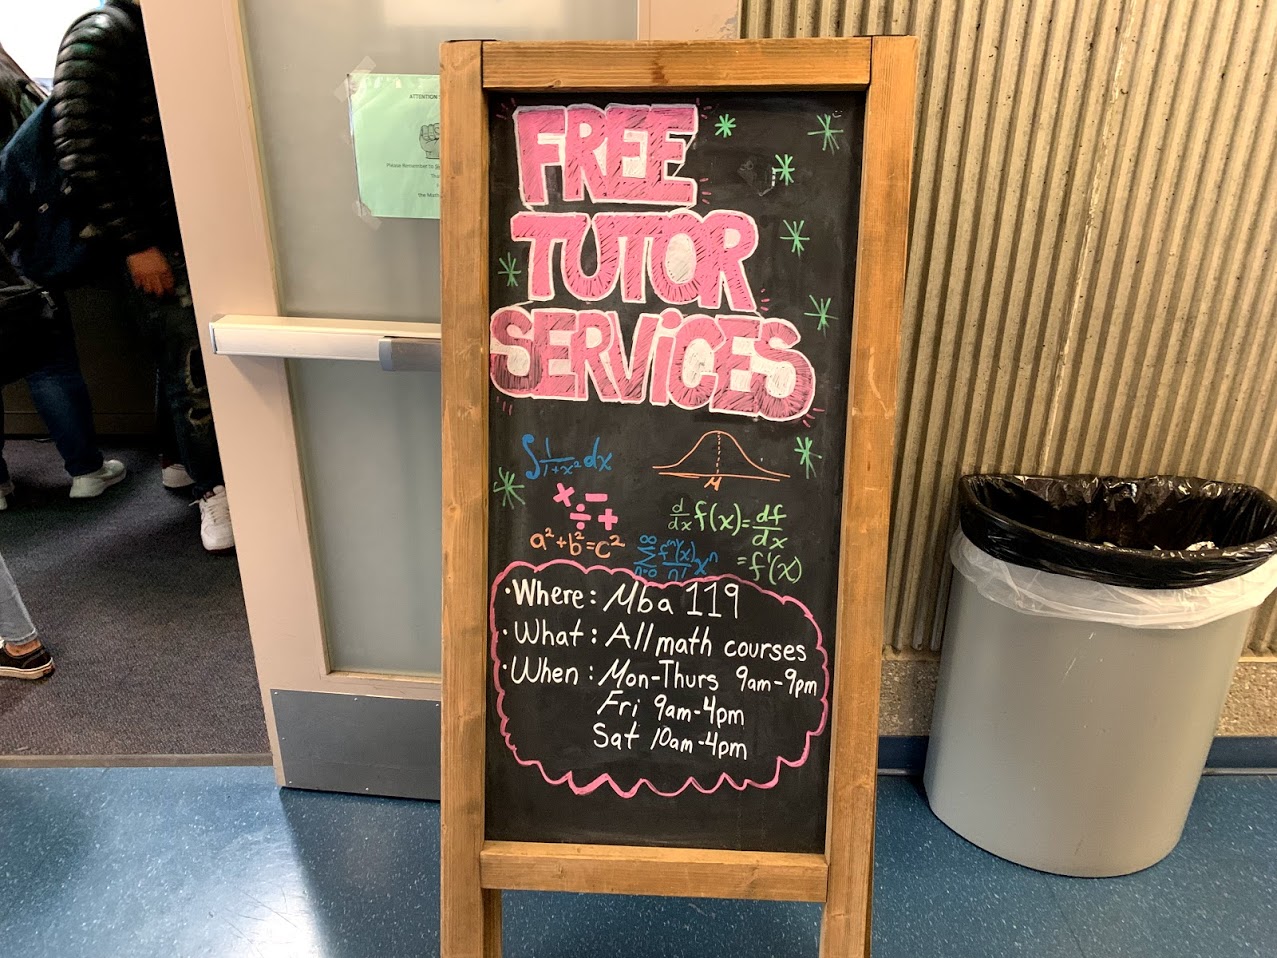 ATTENTION
Please Remember to
the Math
FREE
TUTOR
SERVICES
∫ 1/(1+x²) dx
μ
× − ÷ +
d/dx f(x) = df/dx
= f'(x)
a² + b² = c²
∞ Σ n=0 fⁿ(x)/n! xⁿ
• Where: Mba 119
• What: All math courses
• When: Mon-Thurs 9am-9pm
Fri 9am-4pm
Sat 10am-4pm